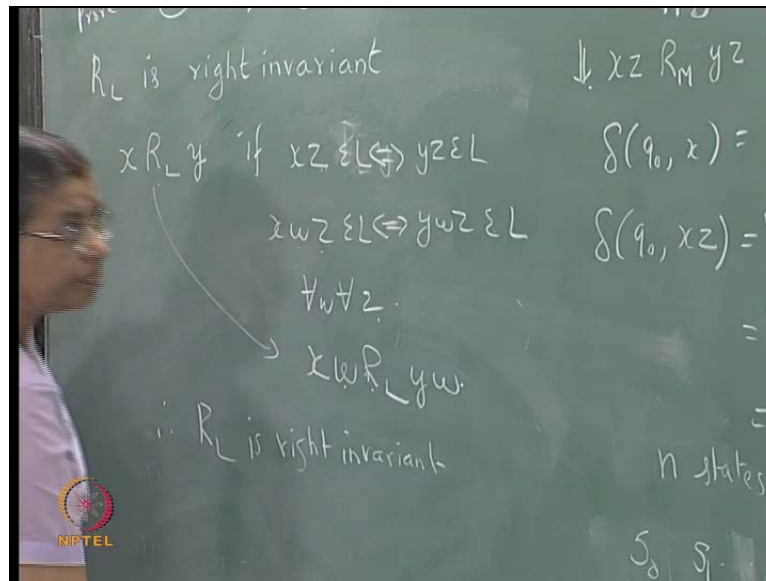 Prove
R_L is right invariant
x R_L y if xz ε L ⇔ yz ε L
xwz ε L ⇔ ywz ε L
∀w ∀z.
xw R_L yw.
∴ R_L is right invariant
⇓ xz R_M yz
δ(q₀, x) =
δ(q₀, xz) =
=
=
n states
NPTEL